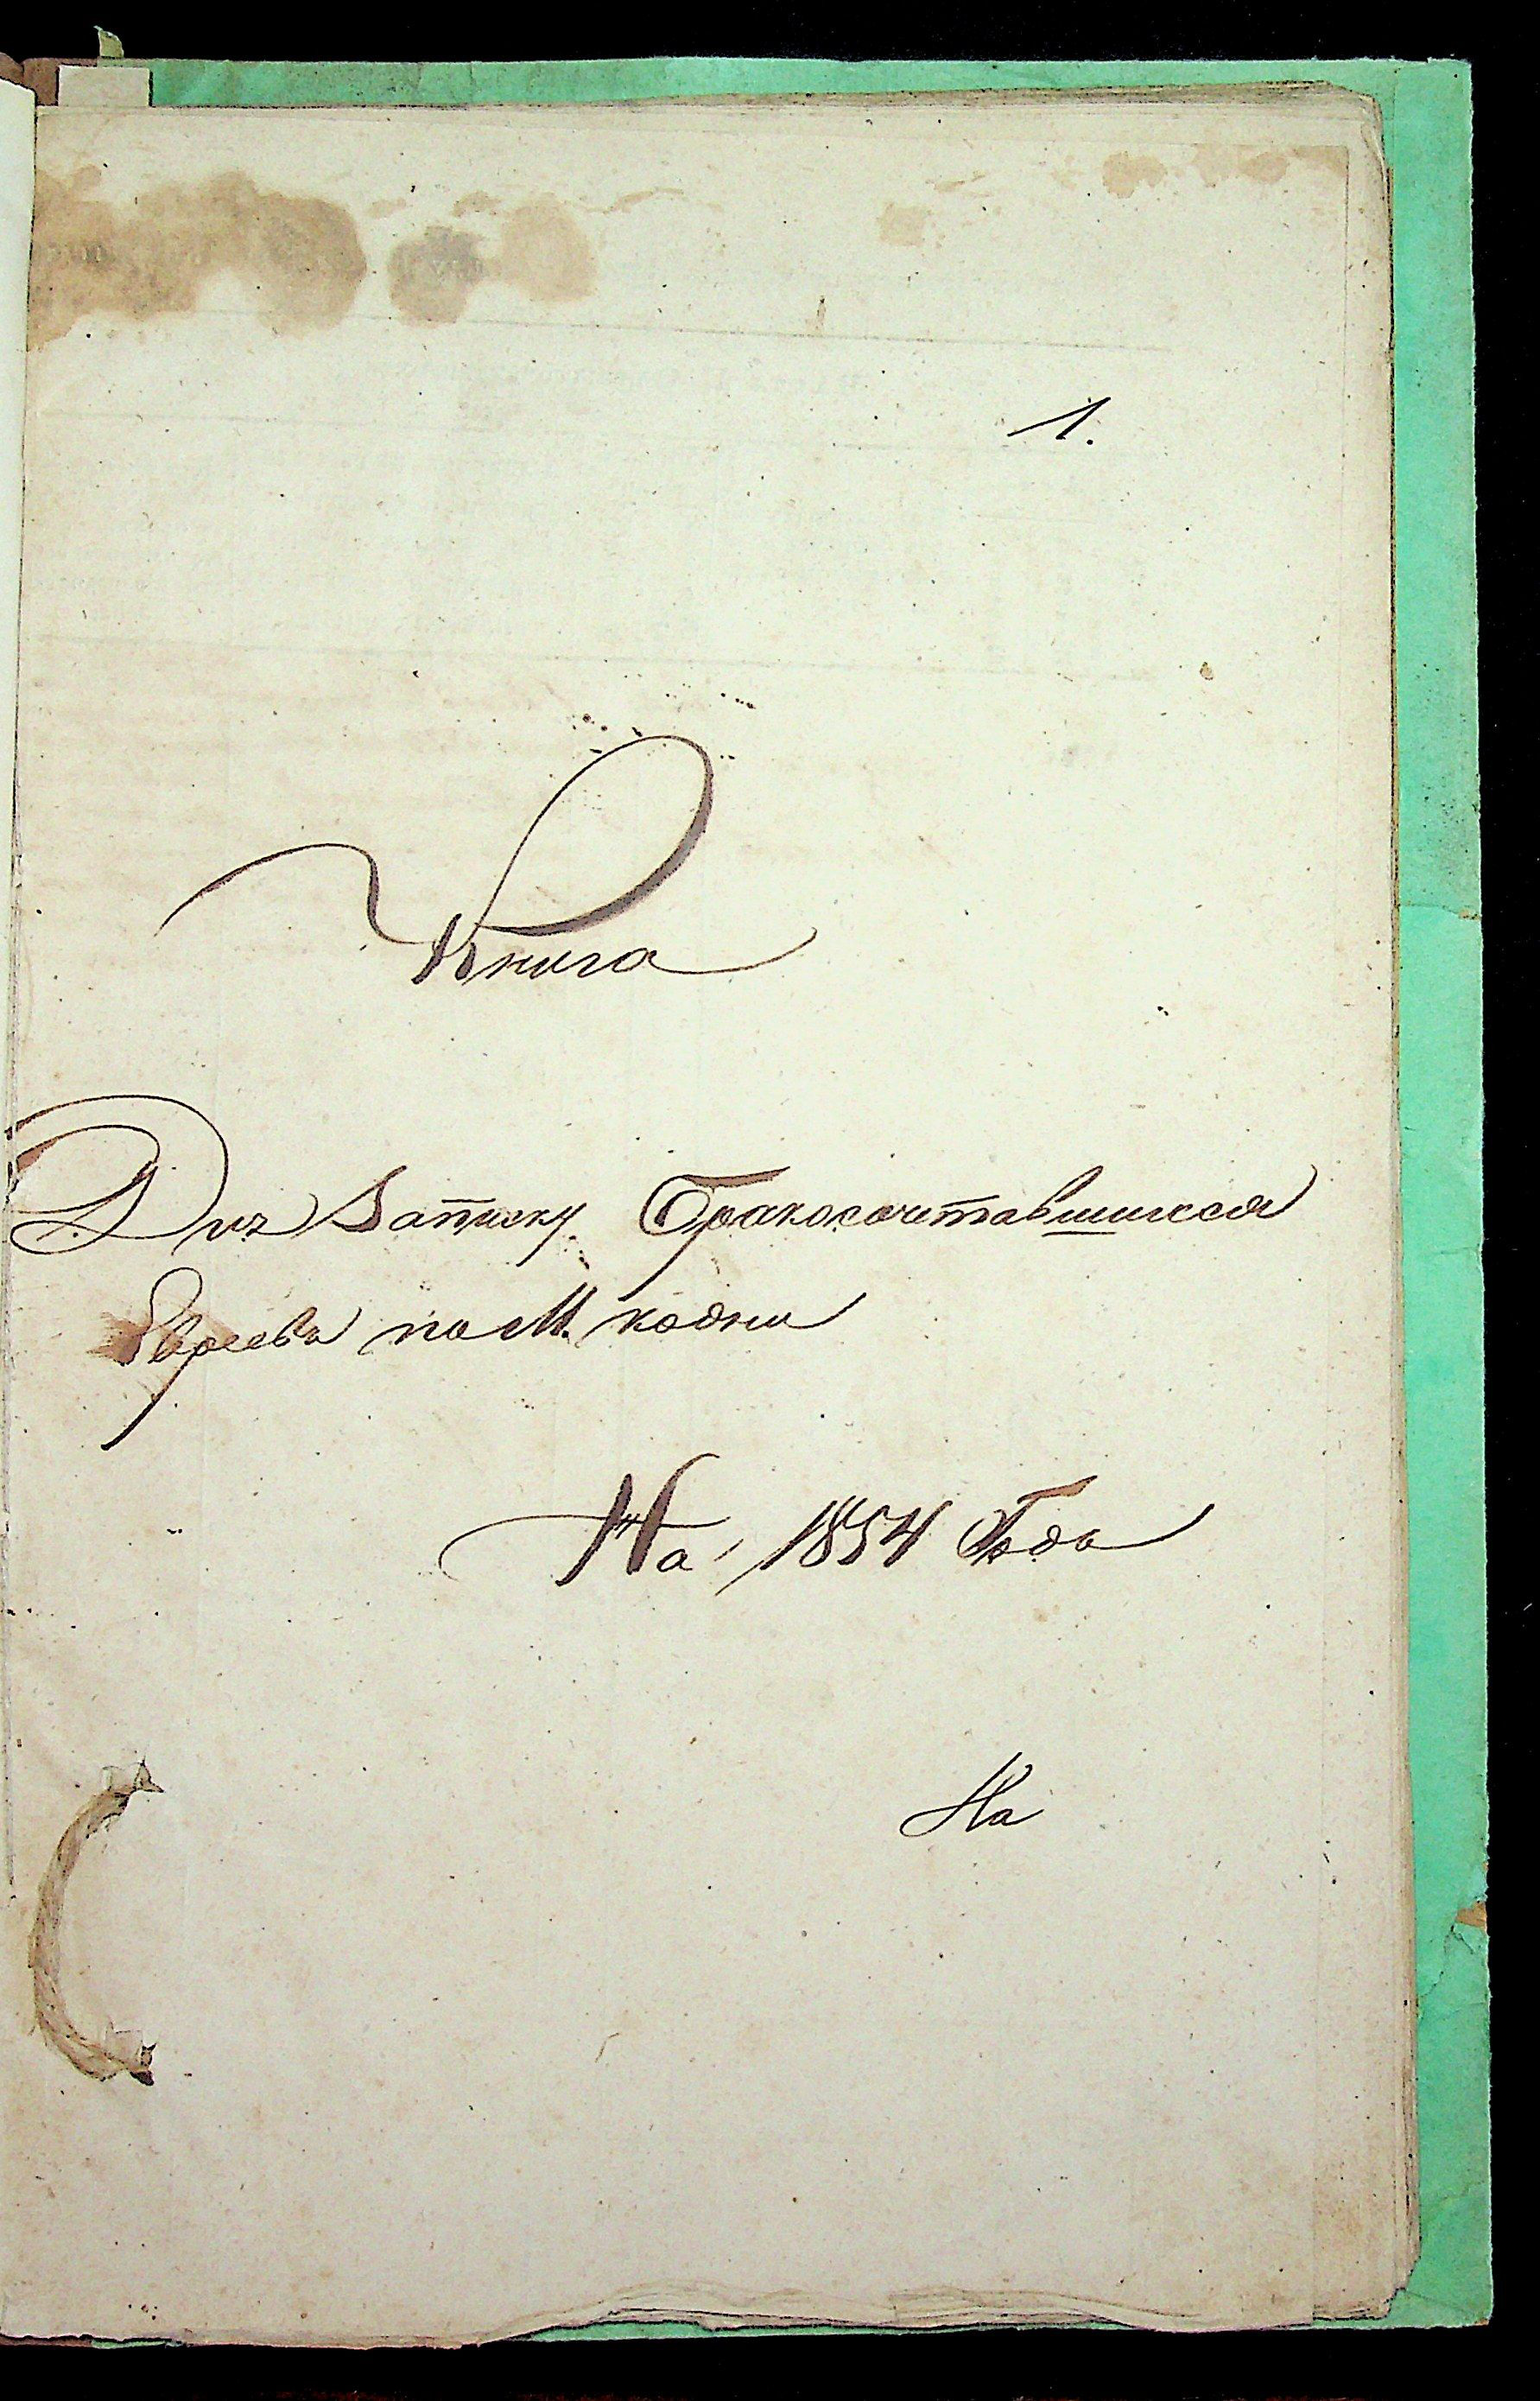 1.
Книга
Для Записку Бракосочетавшихся
Евреевъ по М. кодни
На 1854 Года
На